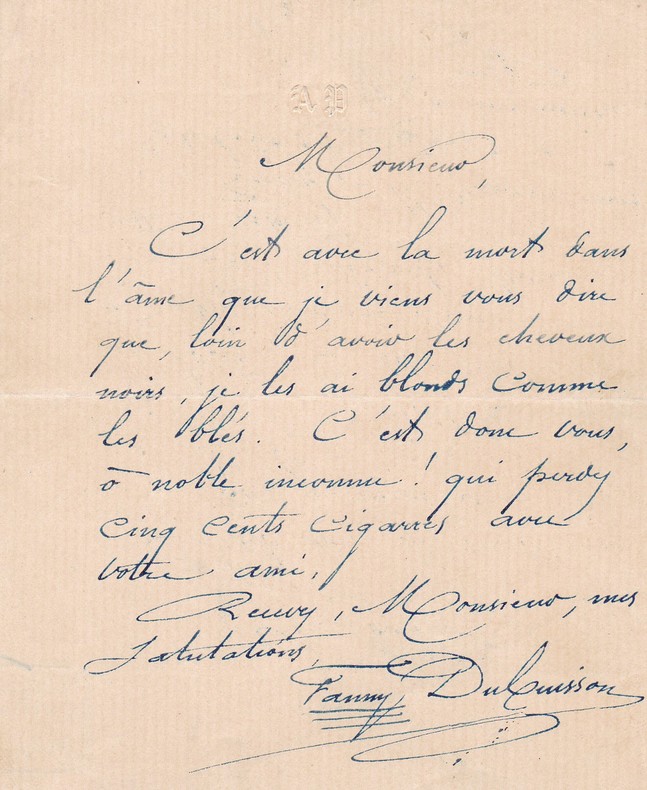 AD
Monsieur,
C'est avec la mort dans
l'âme que je viens vous dire
que, loin d'avoir les cheveux
noirs, je les ai blonds comme
les blés. C'est donc vous,
ô noble inconnu! qui perdez
cinq cents cigarres avec
votre ami.
Recevez, Monsieur, mes
salutations,
Fanny